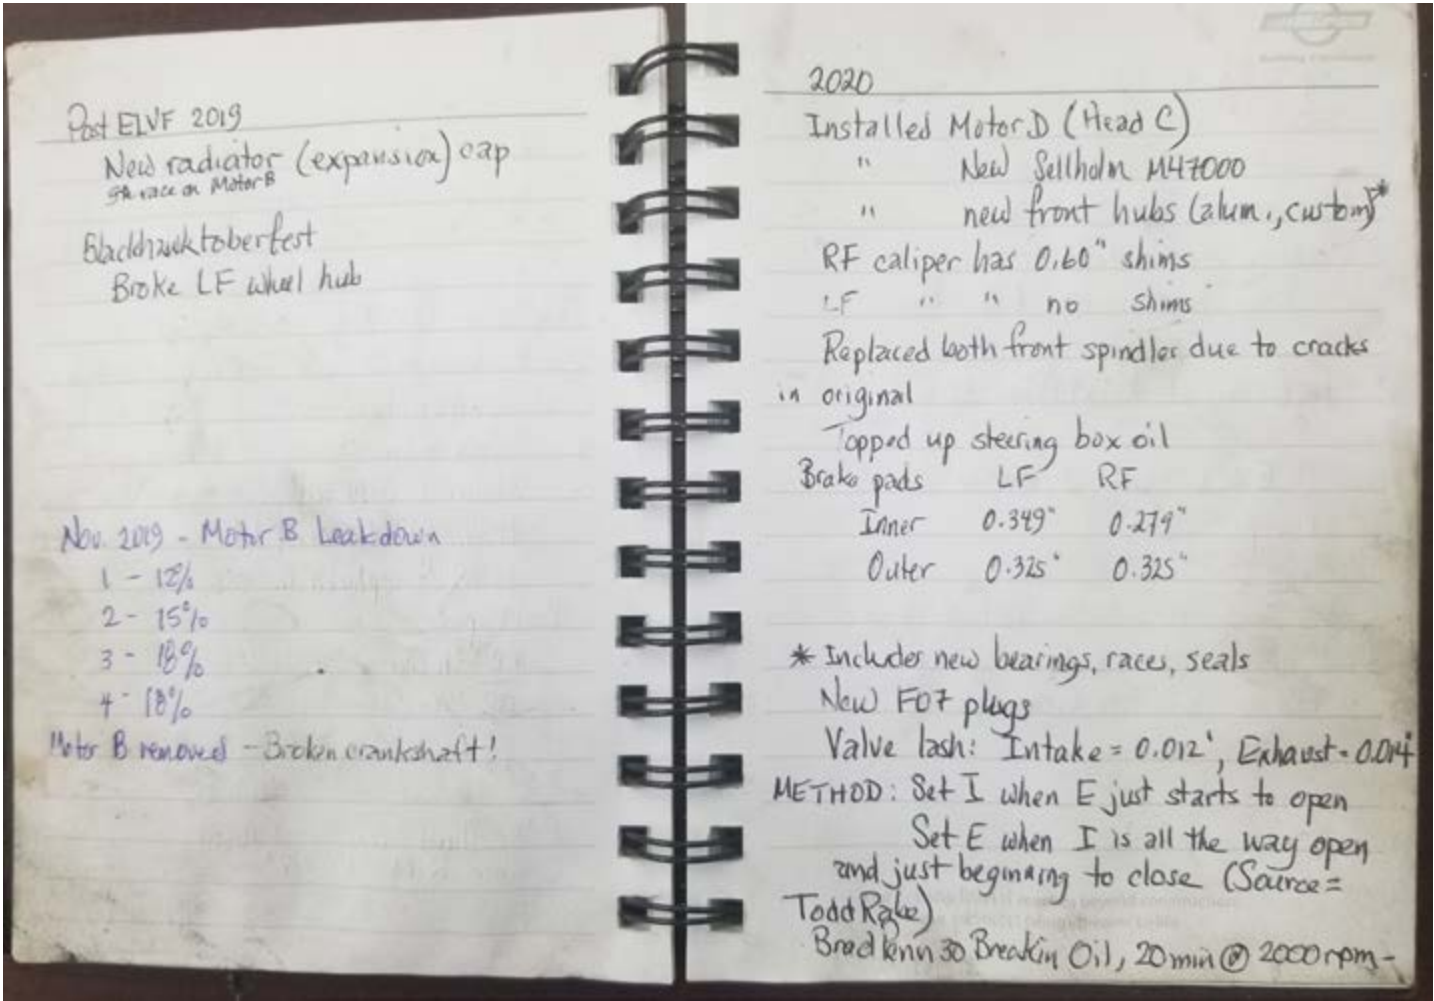 Post ELVF 2019
New radiator (expansion) cap
9th race on Motor B
Blackhawktoberfest
Broke LF wheel hub
Nov. 2019 - Motor B Leakdown
1 - 12%
2 - 15%
3 - 18%
4 - 18%
Motor B removed - Broken crankshaft!
2020
Installed Motor D (Head C)
" New Sellholm M47000
" new front hubs (alum., custom)*
RF caliper has 0.60" shims
LF " " no shims
Replaced both front spindles due to cracks
in original
Topped up steering box oil
Brake pads LF RF
Inner 0.349" 0.279"
Outer 0.325" 0.325"
* Includes new bearings, races, seals
New F07 plugs
Valve lash: Intake = 0.012", Exhaust = 0.014"
METHOD: Set I when E just starts to open
Set E when I is all the way open
and just beginning to close (Source =
Todd Rabe)
Brad Penn 30 Breakin Oil, 20 min @ 2000 rpm -